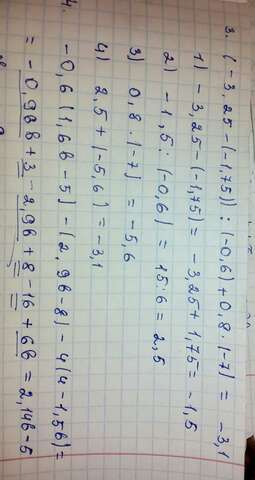 3. (-3,25-(-1,75)):(-0,6)+0,8·(-7) = -3,1
1) -3,25-(-1,75) = -3,25+1,75 = -1,5
2) -1,5:(-0,6) = 15:6 = 2,5
3) 0,8·(-7) = -5,6
4) 2,5+(-5,6) = -3,1
4. -0,6(1,6b-5)-(2,9b-8)-4(4-1,5b) =
= -0,96b+3-2,9b+8-16+6b = 2,14b-5